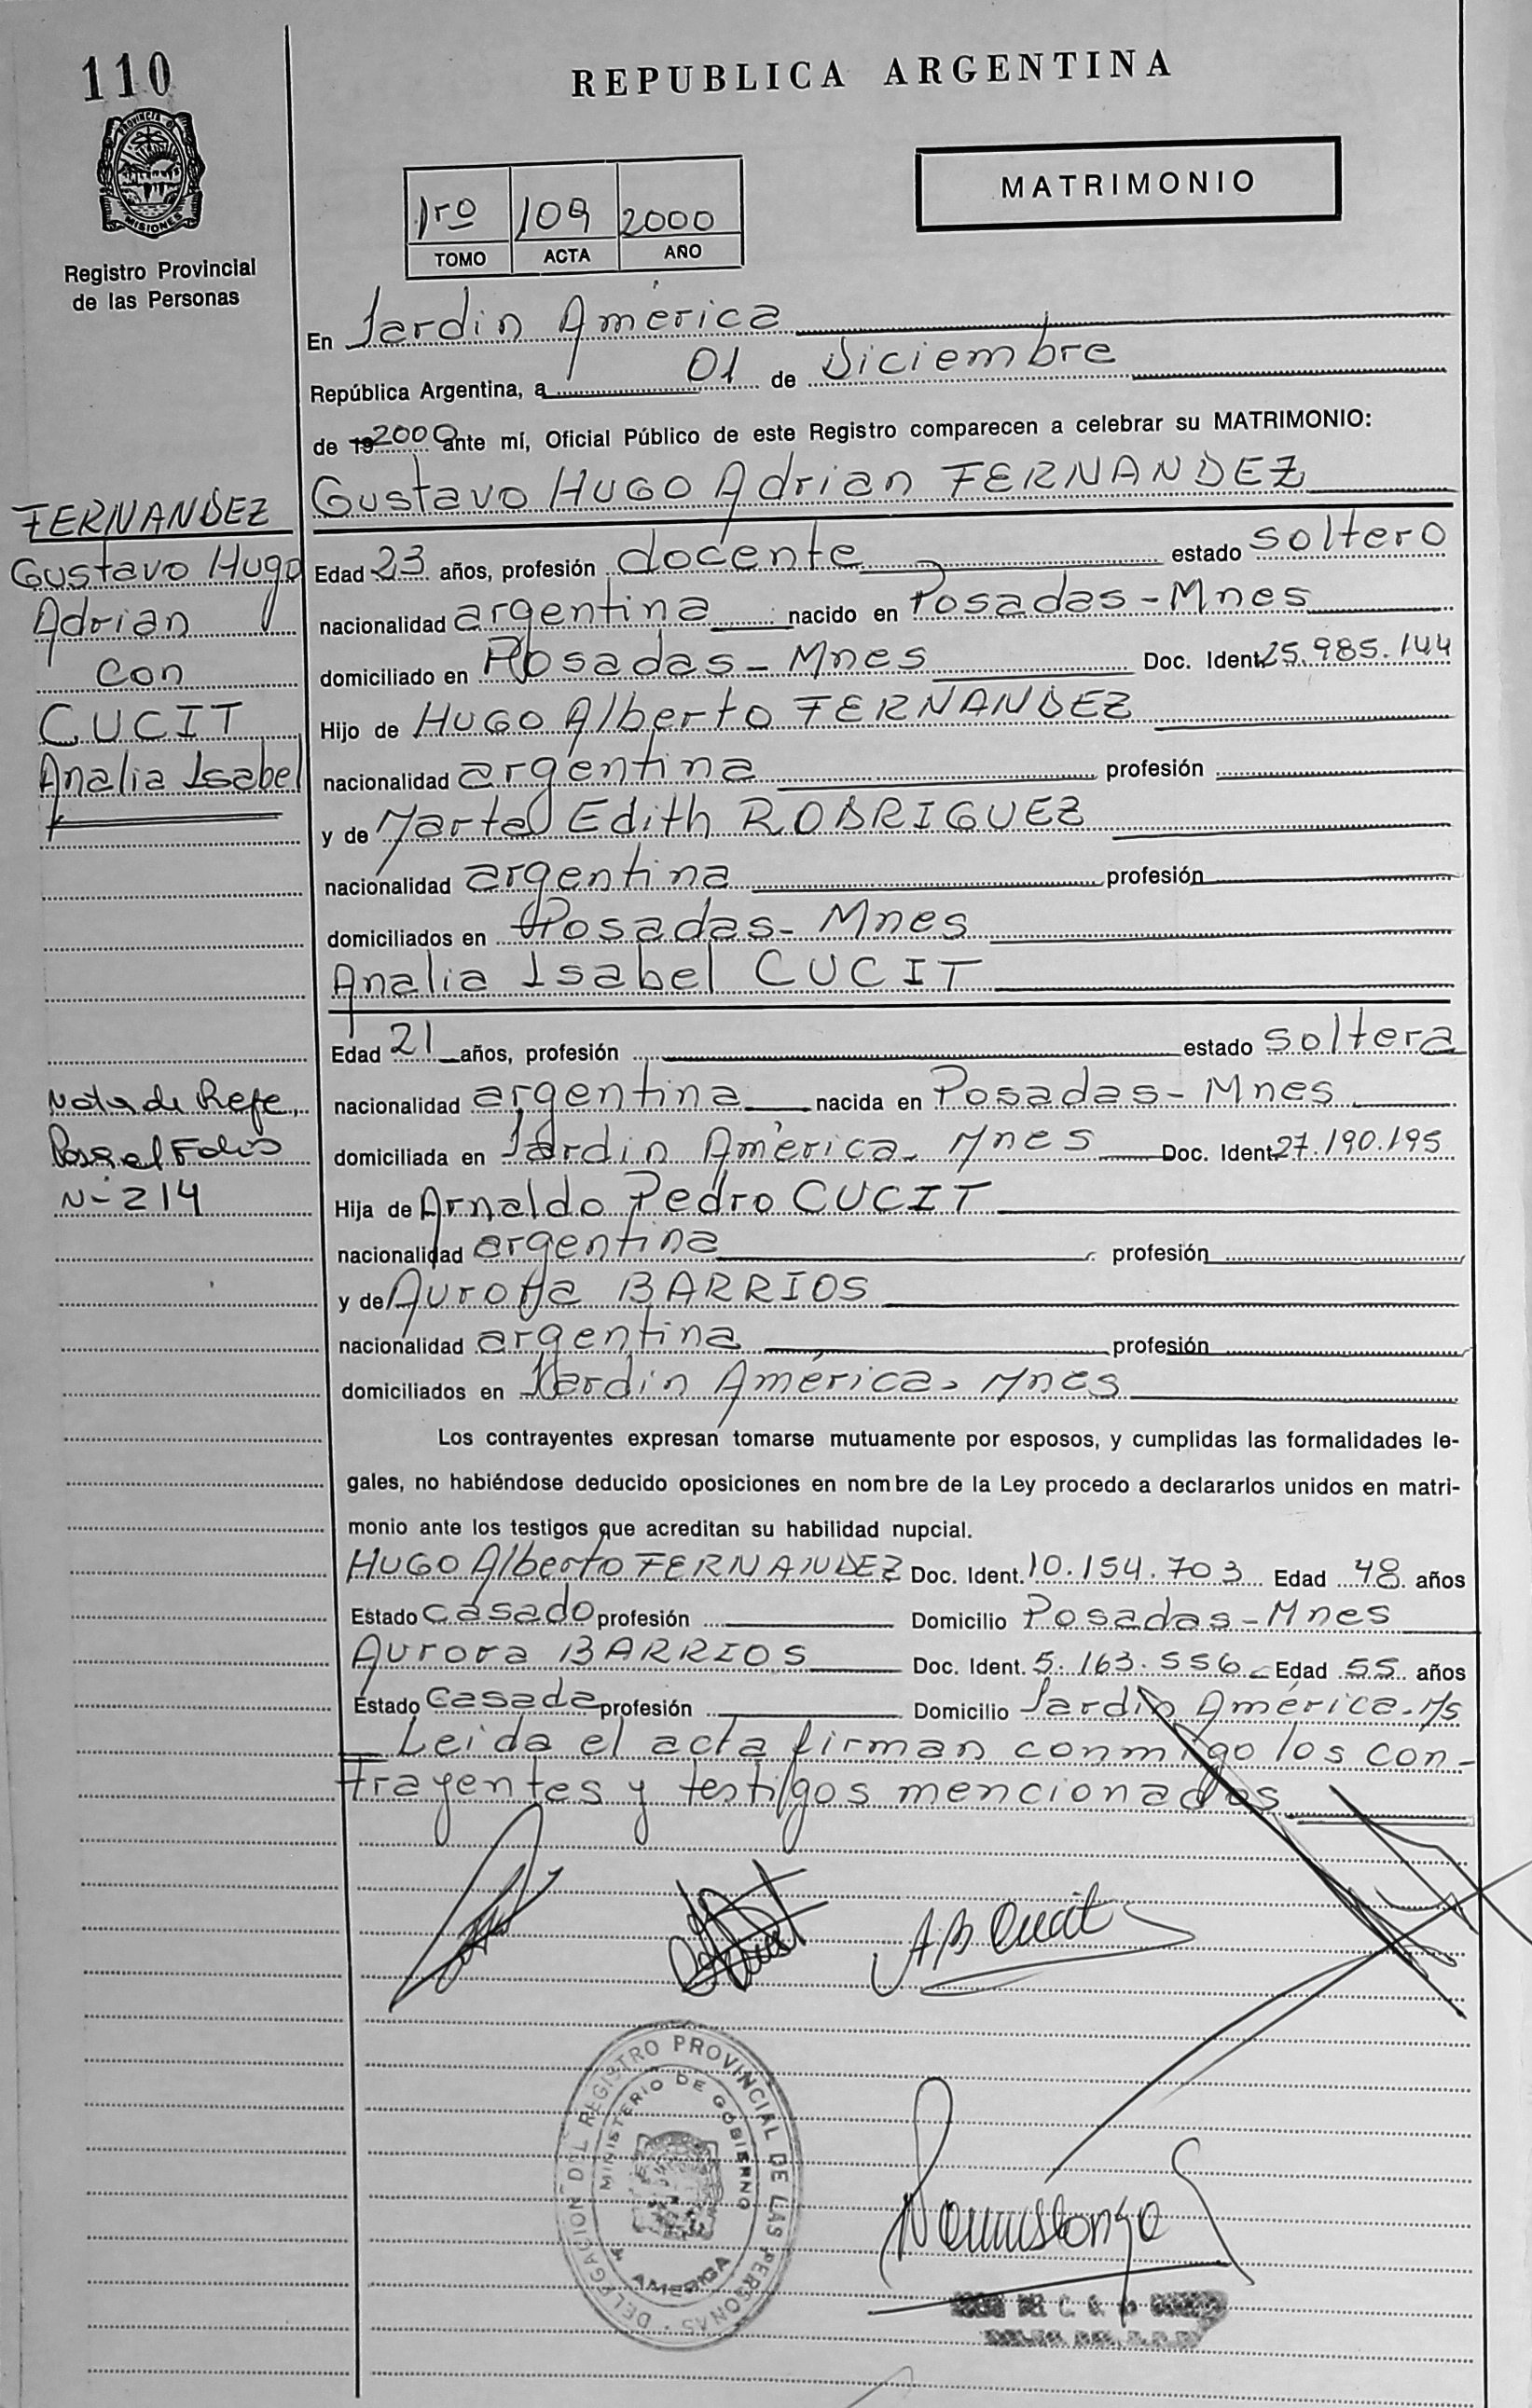 110
REPUBLICA ARGENTINA
PROVINCIA D
MISIONES
Registro Provincial
de las Personas
MATRIMONIO
1ro 109 2000
TOMO ACTA AÑO
En Jardin América
República Argentina, a 01 de Diciembre
de 19 2000 ante mí, Oficial Público de este Registro comparecen a celebrar su MATRIMONIO:
Gustavo HUGO Adrian FERNANDEZ
FERNANDEZ
Gustavo Hugo
Adrian
con
CUCIT
Analia Isabel
Edad 23 años, profesión docente estado soltero
nacionalidad argentina nacido en Posadas-Mnes
domiciliado en Posadas-Mnes Doc. Ident. 25.985.144
Hijo de HUGO Alberto FERNANDEZ
nacionalidad argentina profesión
y de Marta Edith RODRIGUEZ
nacionalidad argentina profesión
domiciliados en Posadas-Mnes
Analia Isabel CUCIT
Edad 21 años, profesión estado soltera
nacionalidad argentina nacida en Posadas-Mnes
domiciliada en Jardin América-Mnes Doc. Ident. 27.190.195
Hija de Arnaldo Pedro CUCIT
nacionalidad argentina profesión
y de Aurora BARRIOS
nacionalidad argentina profesión
domiciliados en Jardin América-Mnes
Nota de Refe.
Pasa el Folio
N- 214
Los contrayentes expresan tomarse mutuamente por esposos, y cumplidas las formalidades le-
gales, no habiéndose deducido oposiciones en nombre de la Ley procedo a declararlos unidos en matri-
monio ante los testigos que acreditan su habilidad nupcial.
HUGO Alberto FERNANDEZ Doc. Ident. 10.154.703 Edad 48 años
Estado casado profesión Domicilio Posadas-Mnes
Aurora BARRIOS Doc. Ident. 5.163.556 Edad 55 años
Estado Casada profesión Domicilio Jardin América-M/s
Leida el acta firman conmigo los con-
trayentes y testigos mencionados
AB Cucit
DELEGACION DEL REGISTRO PROVINCIAL DE LAS PERSONAS
MINISTERIO DE GOBIERNO
J. AMERICA